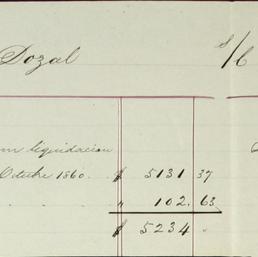 Dozal s/c
liquidacion
Octubre 1860. $ 5131 37
" 102. 63
$ 5234 "